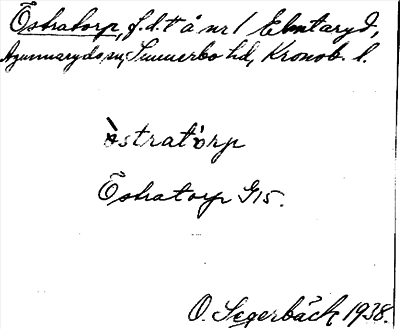 Östratorp, f.d. t å nr 1 Elmtaryd,
Agunnaryds sn, Sunnerbo hd, Kronob. l.
östratorp
Östratorp G15.
O. Segerbäck 1938.